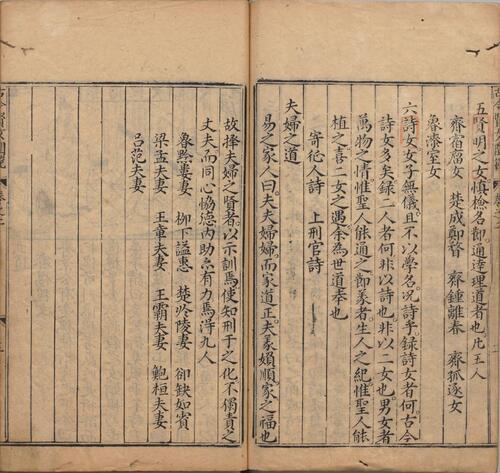 五賢明之女慎檢名節通達理道者也凡五人
齊宿瘤女 楚成鄭瞀 齊鍾離春 齊孤逐女
魯漆室女
六詩女女子無儀且不以學名况詩乎録詩女者何古今
詩女多矣録二人者何非以詩也非以二女也男女者
萬物之情惟聖人能通之節義者生人之紀惟聖人能
植之喜二女之遇余為世道幸也
寄征人詩 上刑官詩
夫婦之道
易之家人曰夫夫婦婦而家道正夫義婦順家之福也
故擇夫婦之賢者以示訓焉使知刑于之化不獨責之
丈夫而同心恊德内助亦有力焉得九人
魯黔婁妻 柳下謚惠 楚於陵妻 郤缺如賓
梁孟夫妻 王章夫妻 王霸夫妻 鮑桓夫妻
吕范夫妻